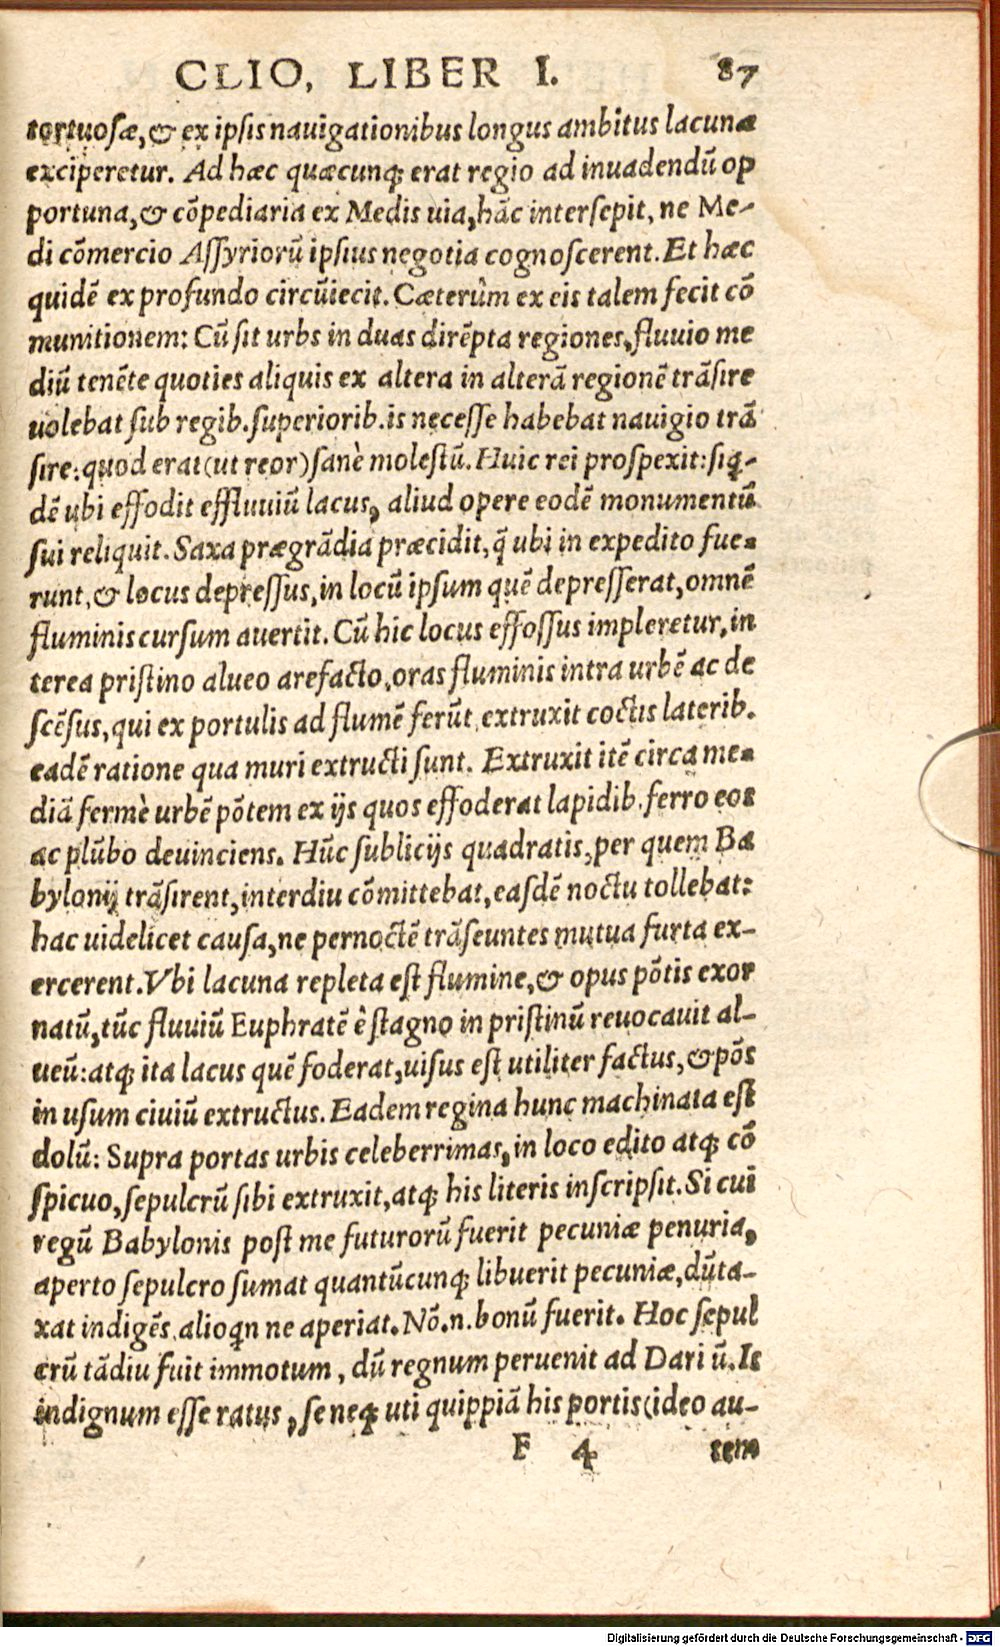 CLIO, LIBER I. 87
tortuosæ, & ex ipsis nauigationibus longus ambitus lacunæ
exciperetur. Ad hæc quæcunq; erat regio ad inuadendū op
portuna, & cōpediaria ex Medis uia, hāc intersepit, ne Me-
di cōmercio Assyriorū ipsius negotia cognoscerent. Et hæc
quidē ex profundo circūiecit. Cæterùm ex eis talem fecit cō
munitionem: Cū sit urbs in duas dirēpta regiones, fluuio me
diū tenēte quoties aliquis ex altera in alterā regionē trāsire
uolebat sub regib. superiorib. is necesse habebat nauigio trā
sire: quod erat (ut reor) sanè molestū. Huic rei prospexit: siq̄-
dē ubi effodit effluuiū lacus, aliud opere eodē monumentū
sui reliquit. Saxa prægrādia præcidit, q̄ ubi in expedito fue-
runt, & locus depressus, in locū ipsum quē depresserat, omnē
fluminis cursum auertit. Cū hic locus effossus impleretur, in
terea pristino alueo arefacto, oras fluminis intra urbē ac de
scēsus, qui ex portulis ad flumē ferūt extruxit coctis laterib.
eadē ratione qua muri extructi sunt. Extruxit itē circa me-
diā fermè urbē pōtem ex ijs quos effoderat lapidib. ferro eos
ac plūbo deuinciens. Hūc sublicijs quadratis, per quem Ba
bylonij trāsirent, interdiu cōmittebat, easdē noctu tollebat:
hac uidelicet causa, ne pernoctē trāseuntes mutua furta ex-
ercerent. Vbi lacuna repleta est flumine, & opus pōtis exor
natū, tūc fluuiū Euphratē è stagno in pristinū reuocauit al-
ueū: atq; ita lacus quē foderat, uisus est utiliter factus, & pōs
in usum ciuiū extructus. Eadem regina hunc machinata est
dolū: Supra portas urbis celeberrimas, in loco edito atq; cō
spicuo, sepulcrū sibi extruxit, atq; his literis inscripsit. Si cui
regū Babylonis post me futurorū fuerit pecuniæ penuria,
aperto sepulcro sumat quantūcunq; libuerit pecuniæ, dūta-
xat indigēs, alioqn ne aperiat. Nō.n. bonū fuerit. Hoc sepul
crū tādiu fuit immotum, dū regnum peruenit ad Dariū. Is
indignum esse ratus, se neq; uti quippiā his portis (ideo au-
F 4 tem
Digitalisierung gefördert durch die Deutsche Forschungsgemeinschaft - DFG